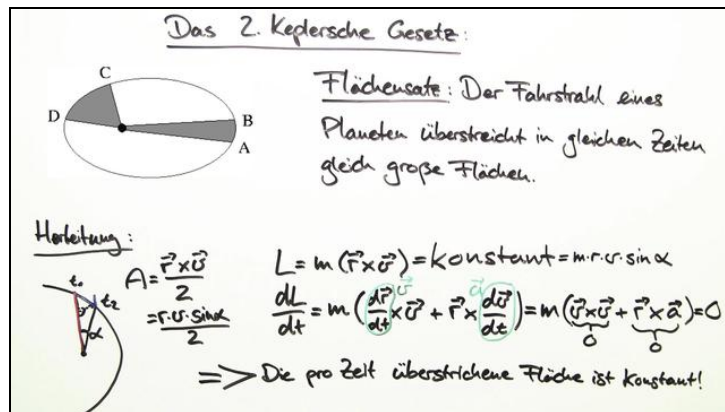 Das 2. Keplersche Gesetz:
C
D
B
A
Flächensatz: Der Fahrstrahl eines
Planeten überstreicht in gleichen Zeiten
gleich große Flächen.
Herleitung:
t₁
t₂
v
α
A = r⃗ x v⃗ / 2
= r·v·sinα / 2
L = m (r⃗ x v⃗) = konstant = m·r·v·sinα
dL/dt = m (dr⃗/dt x v⃗ + r⃗ x dv⃗/dt) = m (v⃗ x v⃗ + r⃗ x a⃗) = 0
v⃗ a⃗
0 0
=> Die pro Zeit überstrichene Fläche ist konstant!